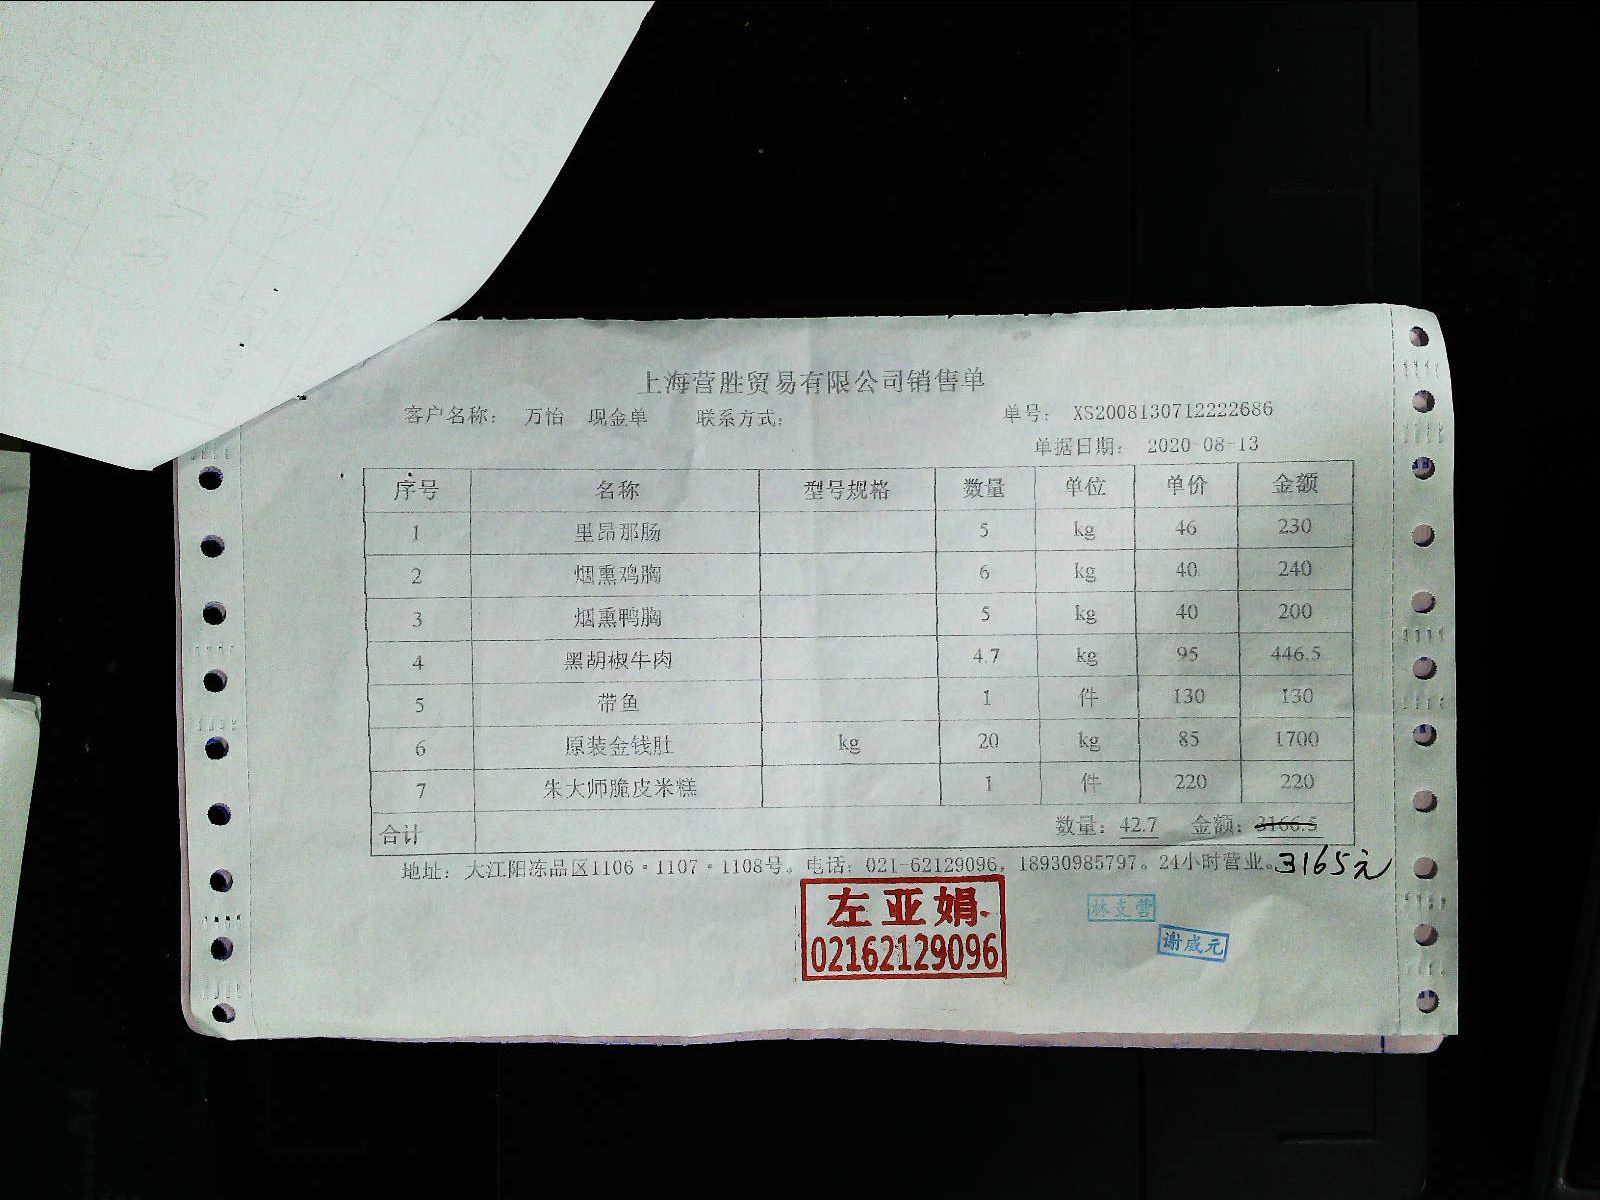 上海营胜贸易有限公司销售单
客户名称： 万怡 现金单 联系方式： 单号： XS2008130712222686
单据日期： 2020-08-13
序号 名称 型号规格 数量 单位 单价 金额
1 里昂那肠 5 kg 46 230
2 烟熏鸡胸 6 kg 40 240
3 烟熏鸭胸 5 kg 40 200
4 黑胡椒牛肉 4.7 kg 95 446.5
5 带鱼 1 件 130 130
6 原装金钱肚 kg 20 kg 85 1700
7 朱大师脆皮米糕 1 件 220 220
合计 数量：42.7 金额：3166.5
地址：大江阳冻品区1106·1107·1108号。电话：021-62129096，18930985797。24小时营业。3165元
左亚娟
02162129096
林支营
谢咸元